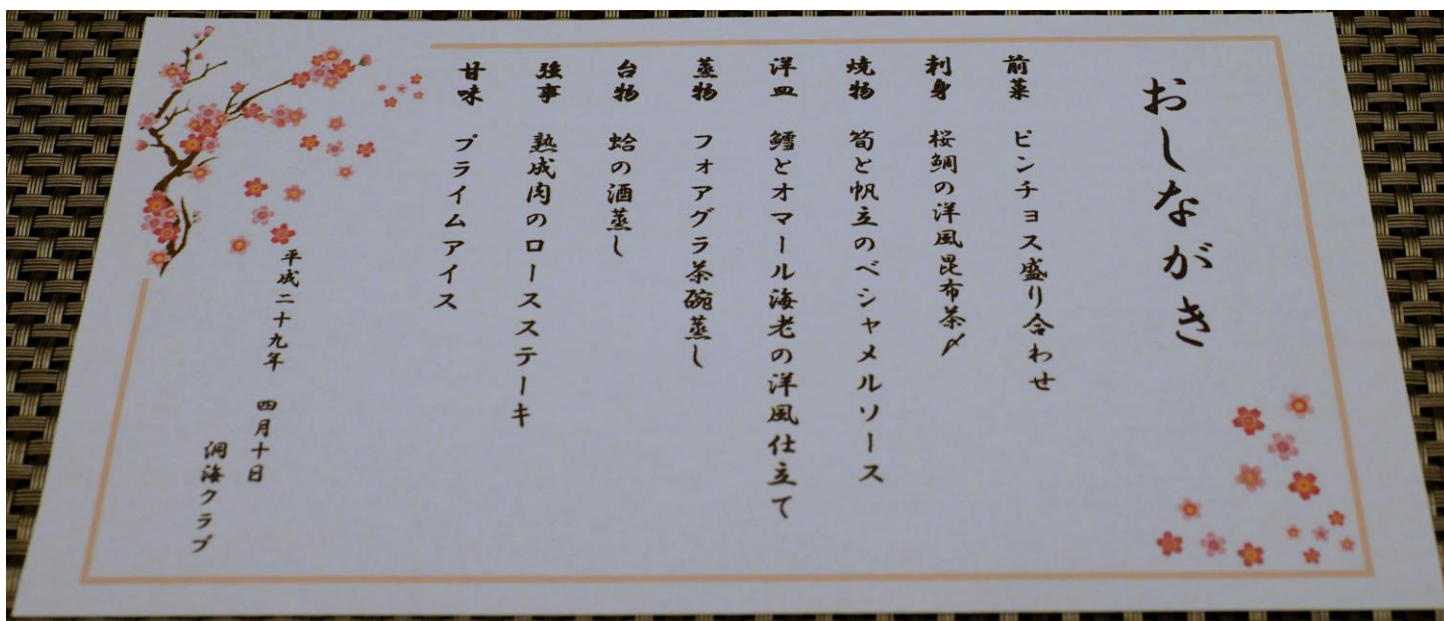 おしながき
前菜 ピンチョス盛り合わせ
刺身 桜鯛の洋風昆布茶〆
焼物 筍と帆立のベシャメルソース
洋皿 鱈とオマール海老の洋風仕立て
蒸物 フォアグラ茶碗蒸し
台物 蛤の酒蒸し
強事 熟成肉のロースステーキ
甘味 プライムアイス
平成二十九年 四月十日
洞海クラブ